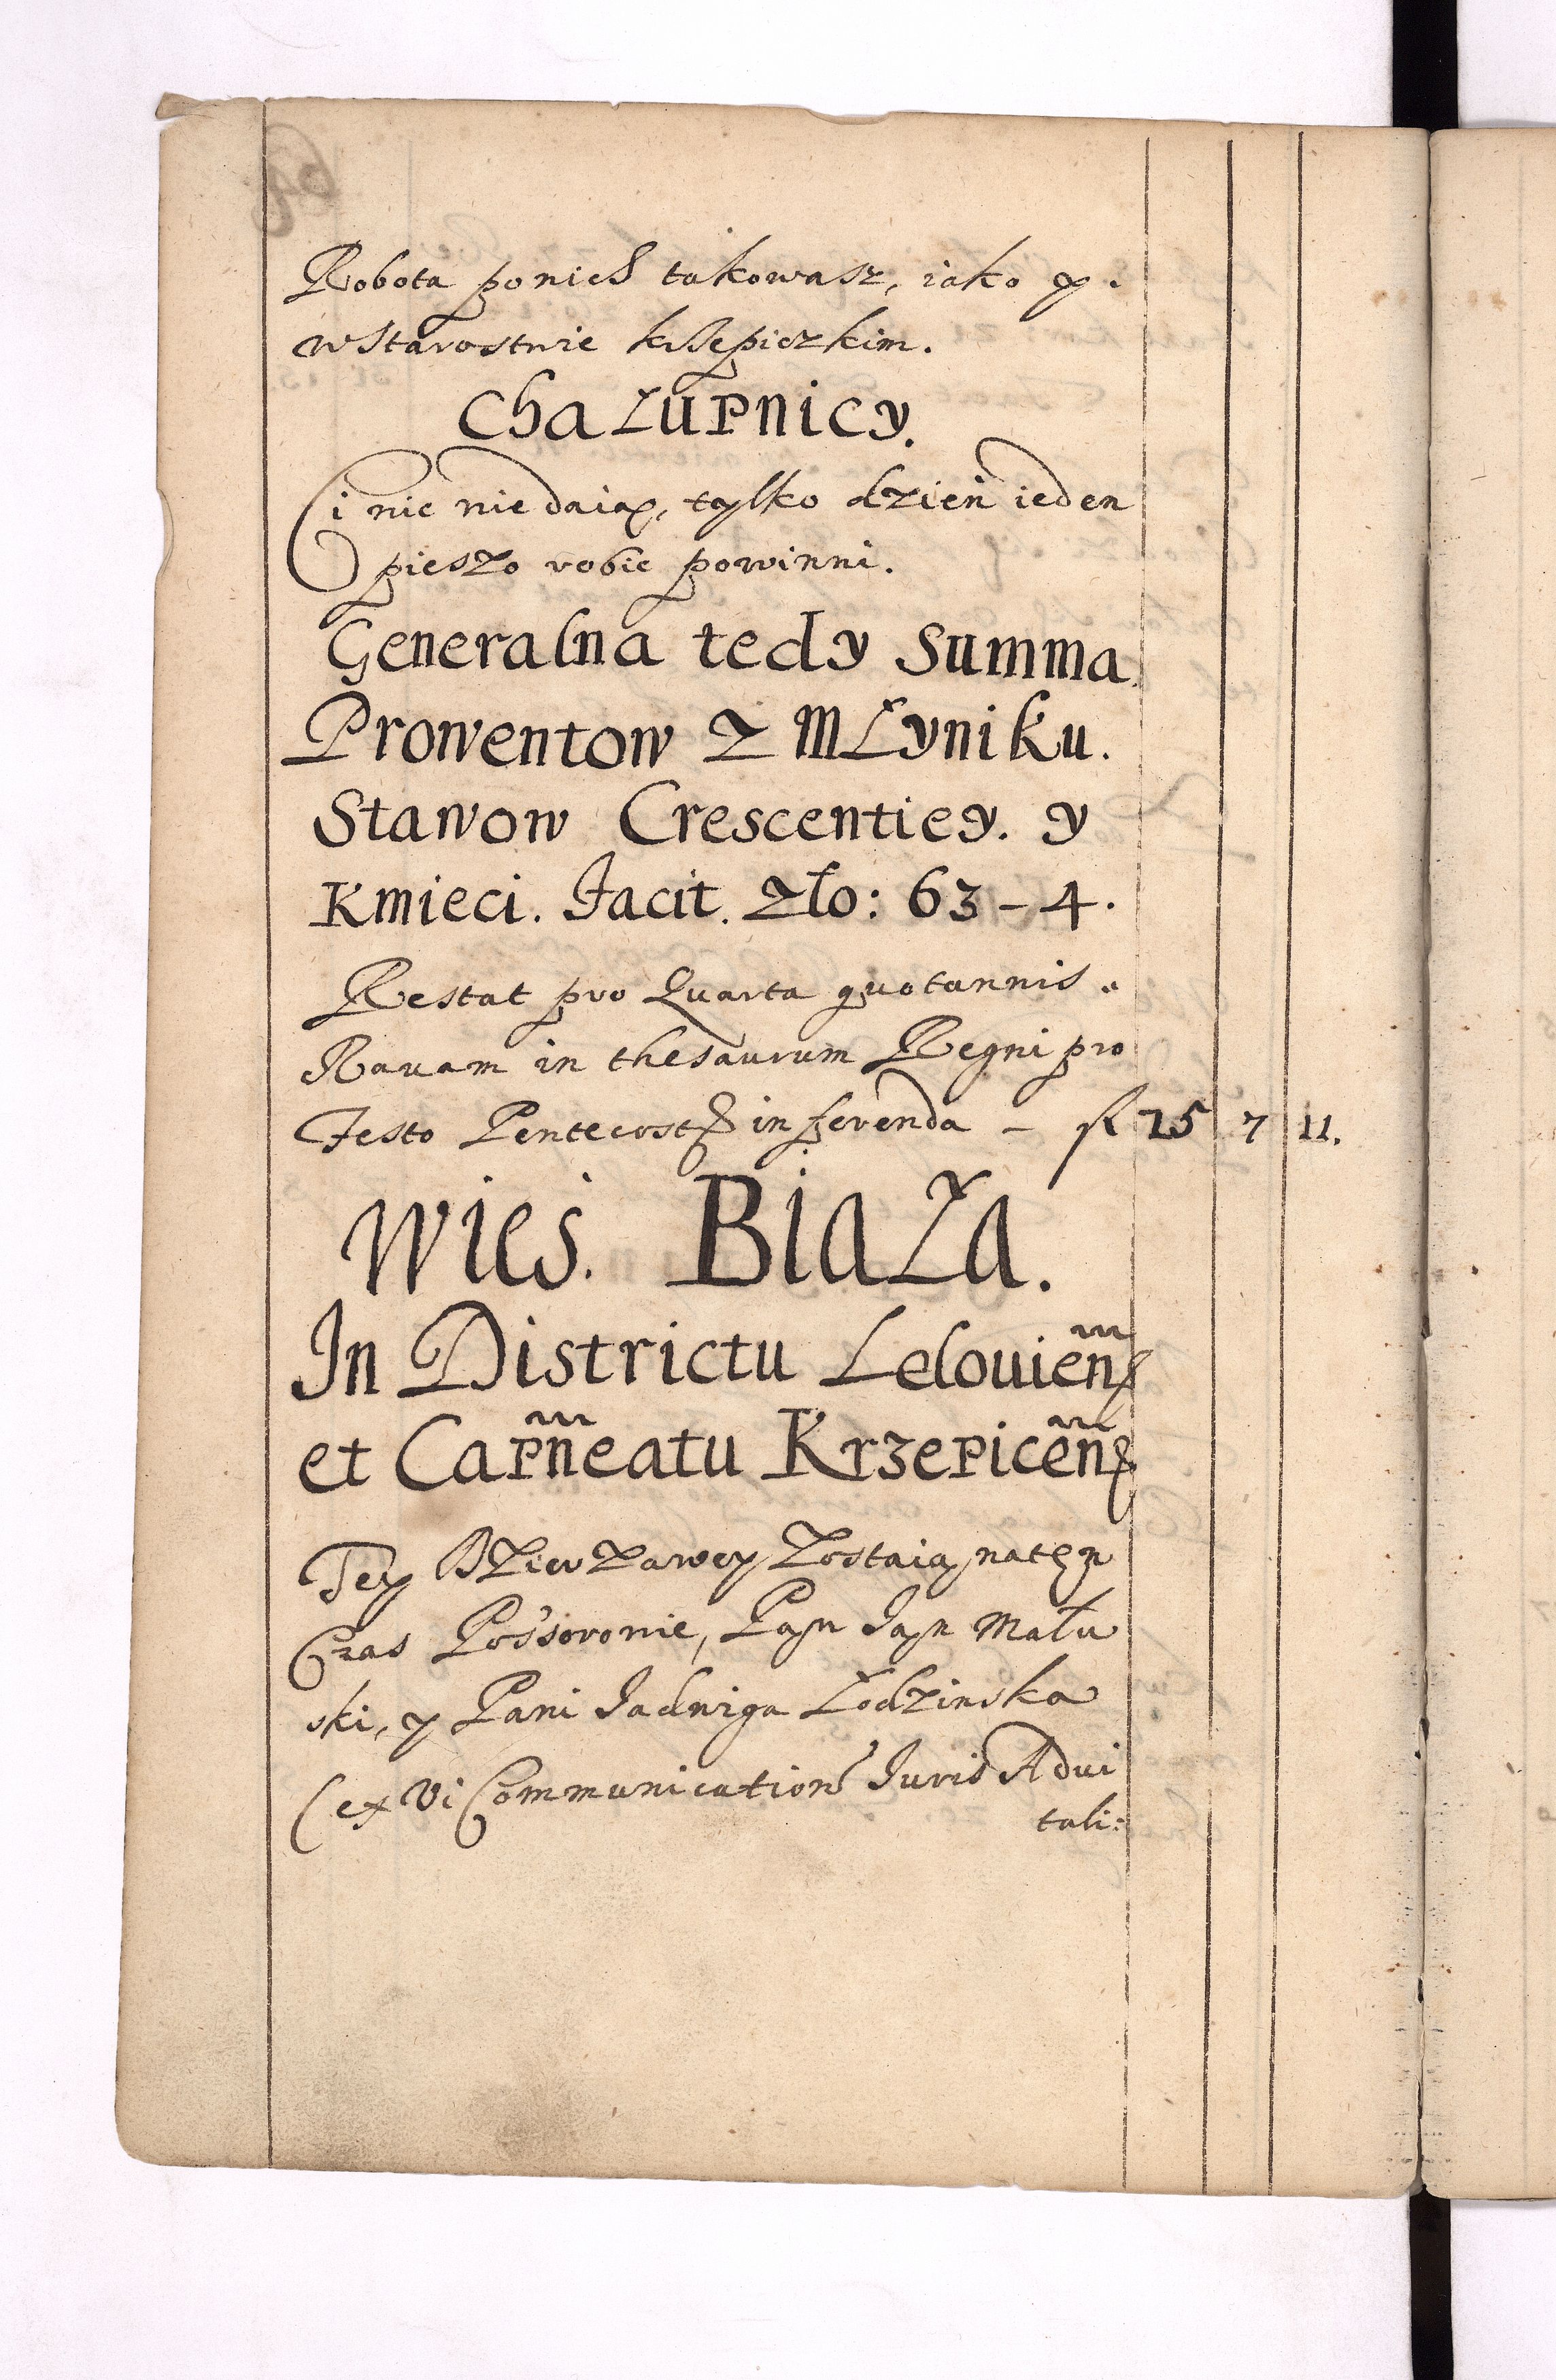 Robota ponich takowasz, iako y.
w Starostwie krzepiczkim.
Chałupnicy.
Ci nic nie daią, tylko dzień ieden
pieszo robic powinni.
Generalna tedy Summa
Prowentow z Młyniku.
Stawow Crescentiey. y
Kmieci. Facit. Zło: 63 - 4.
Restat pro Quarta quotannis
Ravam in thesaurum Regni pro
Festo Pentecost inferenda - fl 15 7 11.
Wieś. Biała.
In Districtu Leloviens
et Capneatu Krzepicens
Tey Dzierzawey Zostaią natęn
Czas Possorowie, Pan Jan Matu
ski, y Pani Jadwiga Łodzinska
(ex Vi Communication Juris Advi
tali: